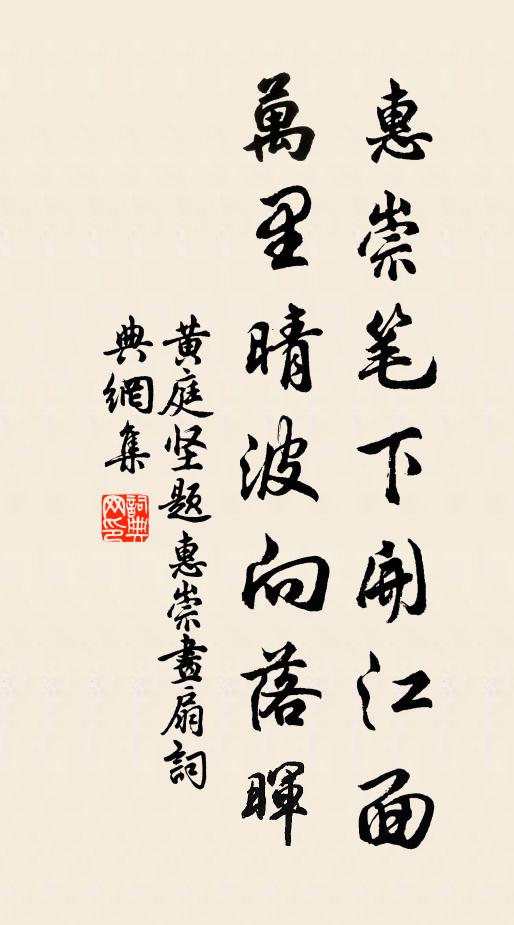 惠崇笔下開江面
萬里晴波向落暉
黄庭坚题惠崇畫扇詞
典網集
詞典
网印